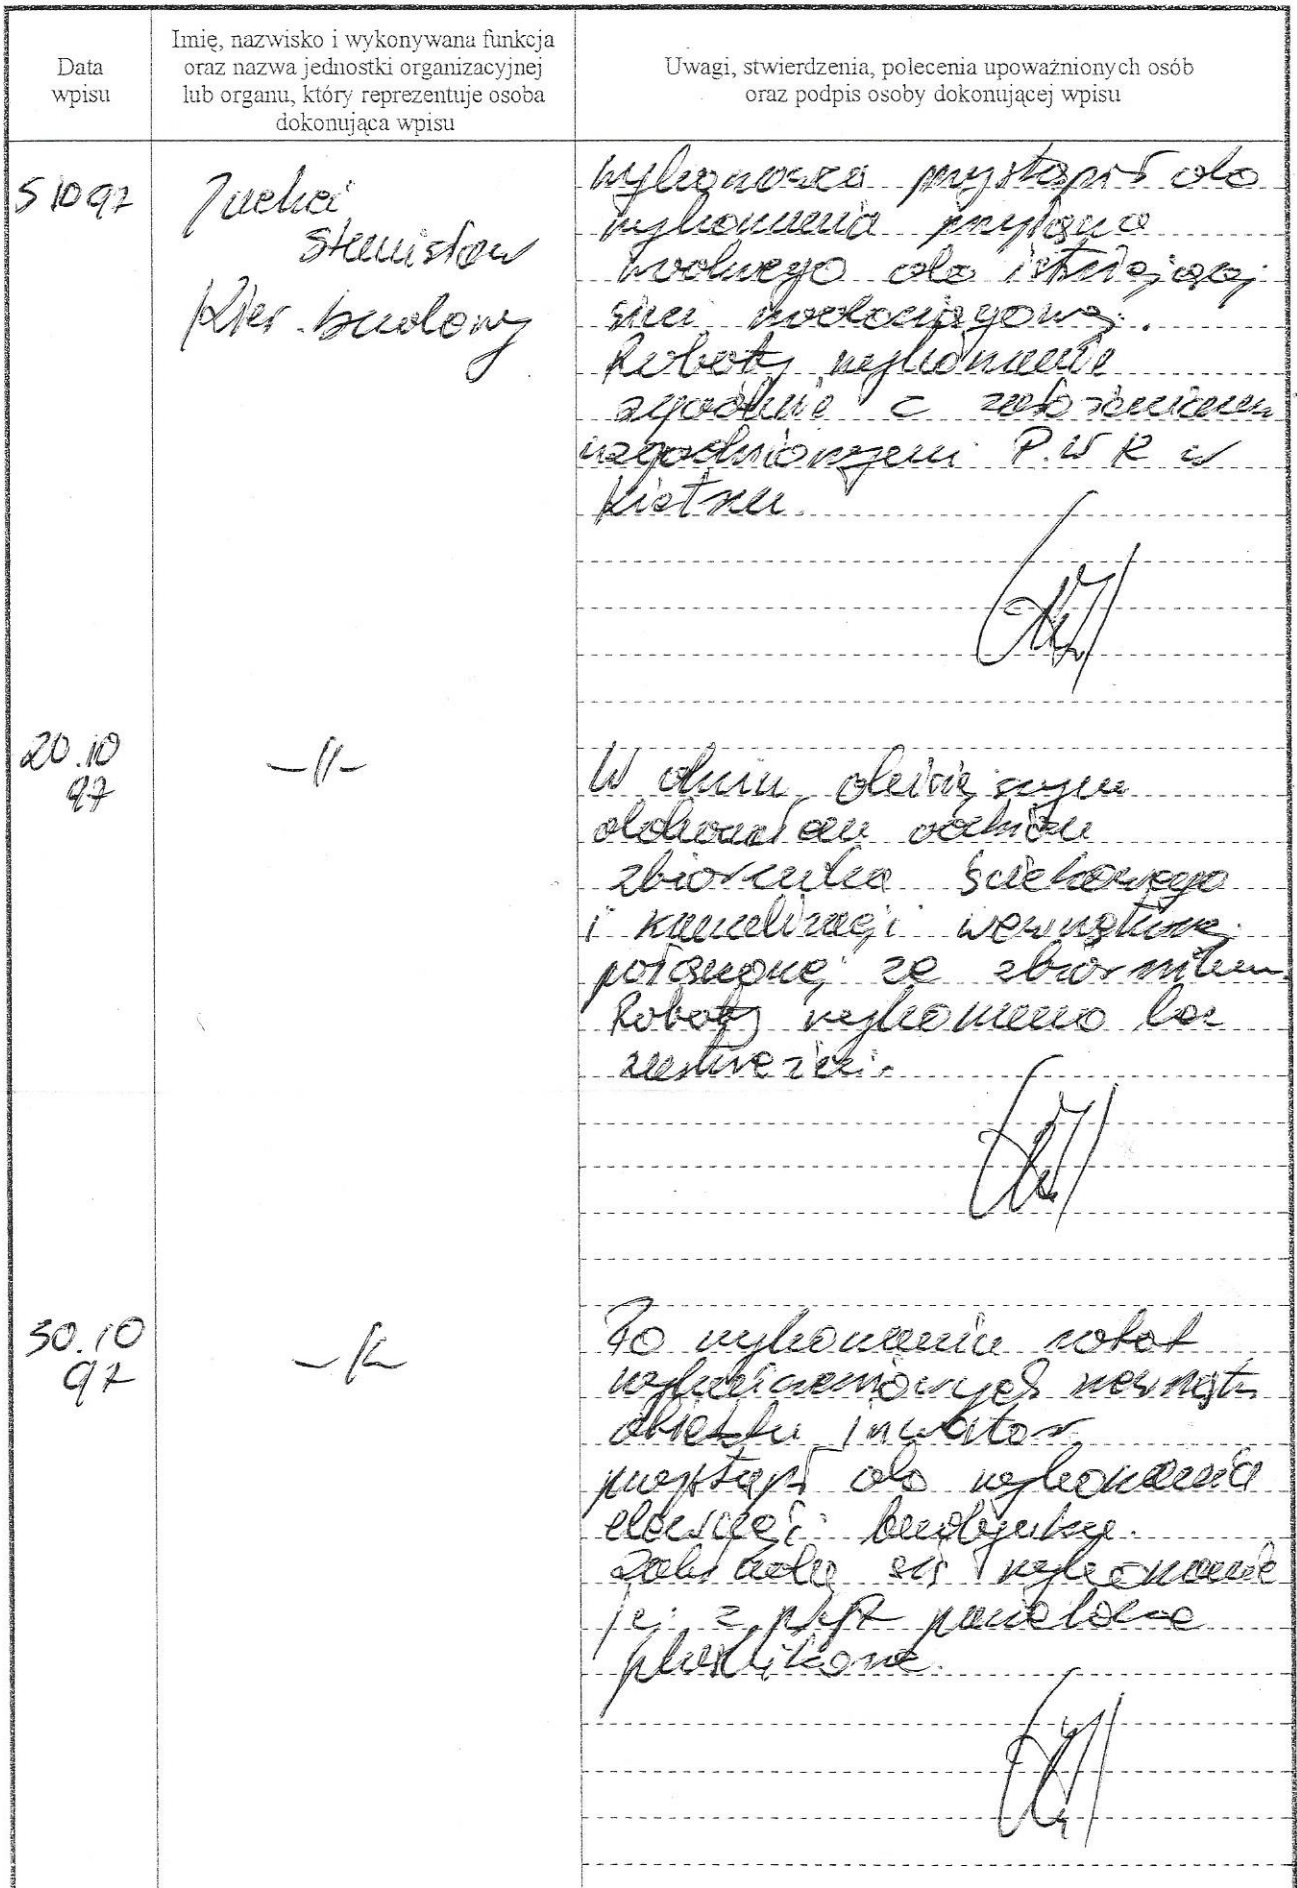 Data
wpisu
Imię, nazwisko i wykonywana funkcja
oraz nazwa jednostki organizacyjnej
lub organu, który reprezentuje osoba
dokonująca wpisu
Uwagi, stwierdzenia, polecenia upoważnionych osób
oraz podpis osoby dokonującej wpisu
5 10 97
Stanisław
Kier. budowy
Wykonawca przystąpił do
wykonania przyłącza
wodnego do istniejącej
sieci wodociągowej.
Roboty wykonanie
zgodnie z
uzgodnionymi P.W R w
20.10
97
-//-
W dniu dzisiejszym
dokonałem odbioru
zbiornika ściekowego
i kanalizacji wewnętrznej
połączonej ze zbiornikiem.
Roboty wykonano bez
zastrzeżeń.
30.10
97
-//-
Po wykonaniu robot
wykończeniowych wewnątrz
obiektu inwestor
przystąpił do wykonania
elewacji budynku.
Zakłada się wykonanie
jej z płyt